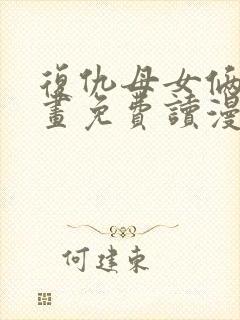 復仇母女倆
畫免費讀漫
何建東